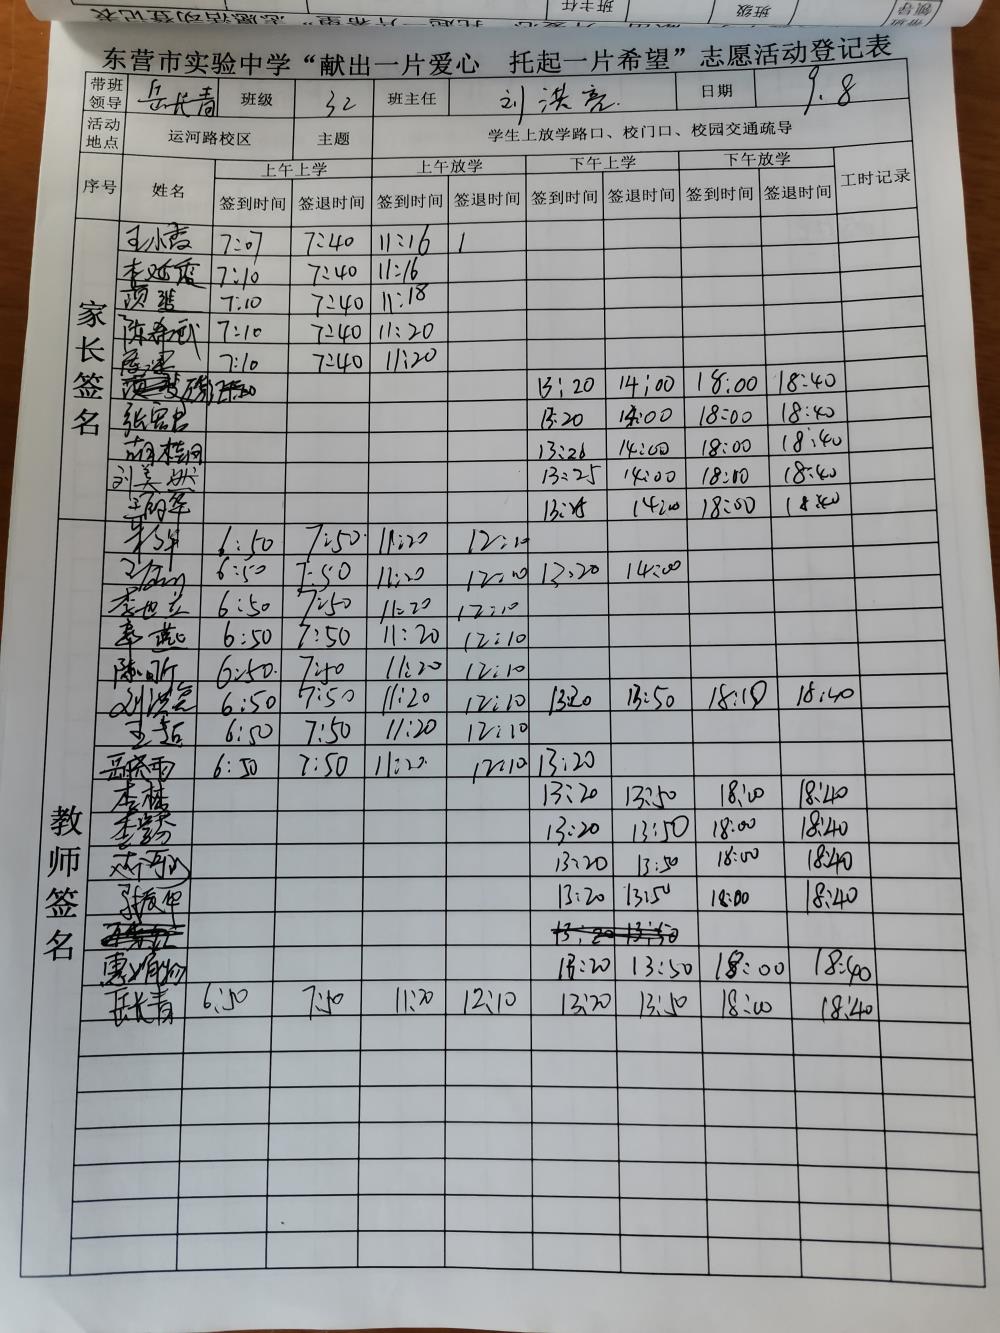 东营市实验中学“献出一片爱心　托起一片希望”志愿活动登记表
带班领导 岳长青 班级 32 班主任 刘洪亮 日期 9.8
活动地点 运河路校区 主题 学生上放学路口、校门口、校园交通疏导
序号 姓名 上午上学 上午放学 下午上学 下午放学 工时记录
签到时间 签退时间 签到时间 签退时间 签到时间 签退时间 签到时间 签退时间
家长签名
王小霞 7:07 7:40 11:16
7:10 7:40 11:16
7:10 7:40 11:18
7:10 7:40 11:20
7:10 7:40 11:20
13:20 14:00 18:00 18:40
13:20 14:00 18:00 18:40
胡桂 13:20 14:00 18:00 18:40
刘美 13:25 14:00 18:00 18:40
14:00 18:00 18:40
教师签名
6:50 7:50 11:20 12:10
6:50 7:50 11:20 12:10 13:20 14:00
李世 6:50 7:50 11:20 12:10
燕 6:50 7:50 11:20 12:10
陈 6:50 7:50 11:20 12:10
刘洪亮 6:50 7:50 11:20 12:10 13:20 13:50 18:10 18:40
王 6:50 7:50 11:20 12:10
岳晓雨 6:50 7:50 11:20 12:10 13:20
李林 13:20 13:50 18:00 18:40
李 13:20 13:50 18:00 18:40
13:20 13:50 18:00 18:40
张 13:20 13:50 18:00 18:40
13:20 13:50
惠 13:20 13:50 18:00 18:40
岳长青 6:50 7:50 11:20 12:10 13:20 13:50 18:00 18:40